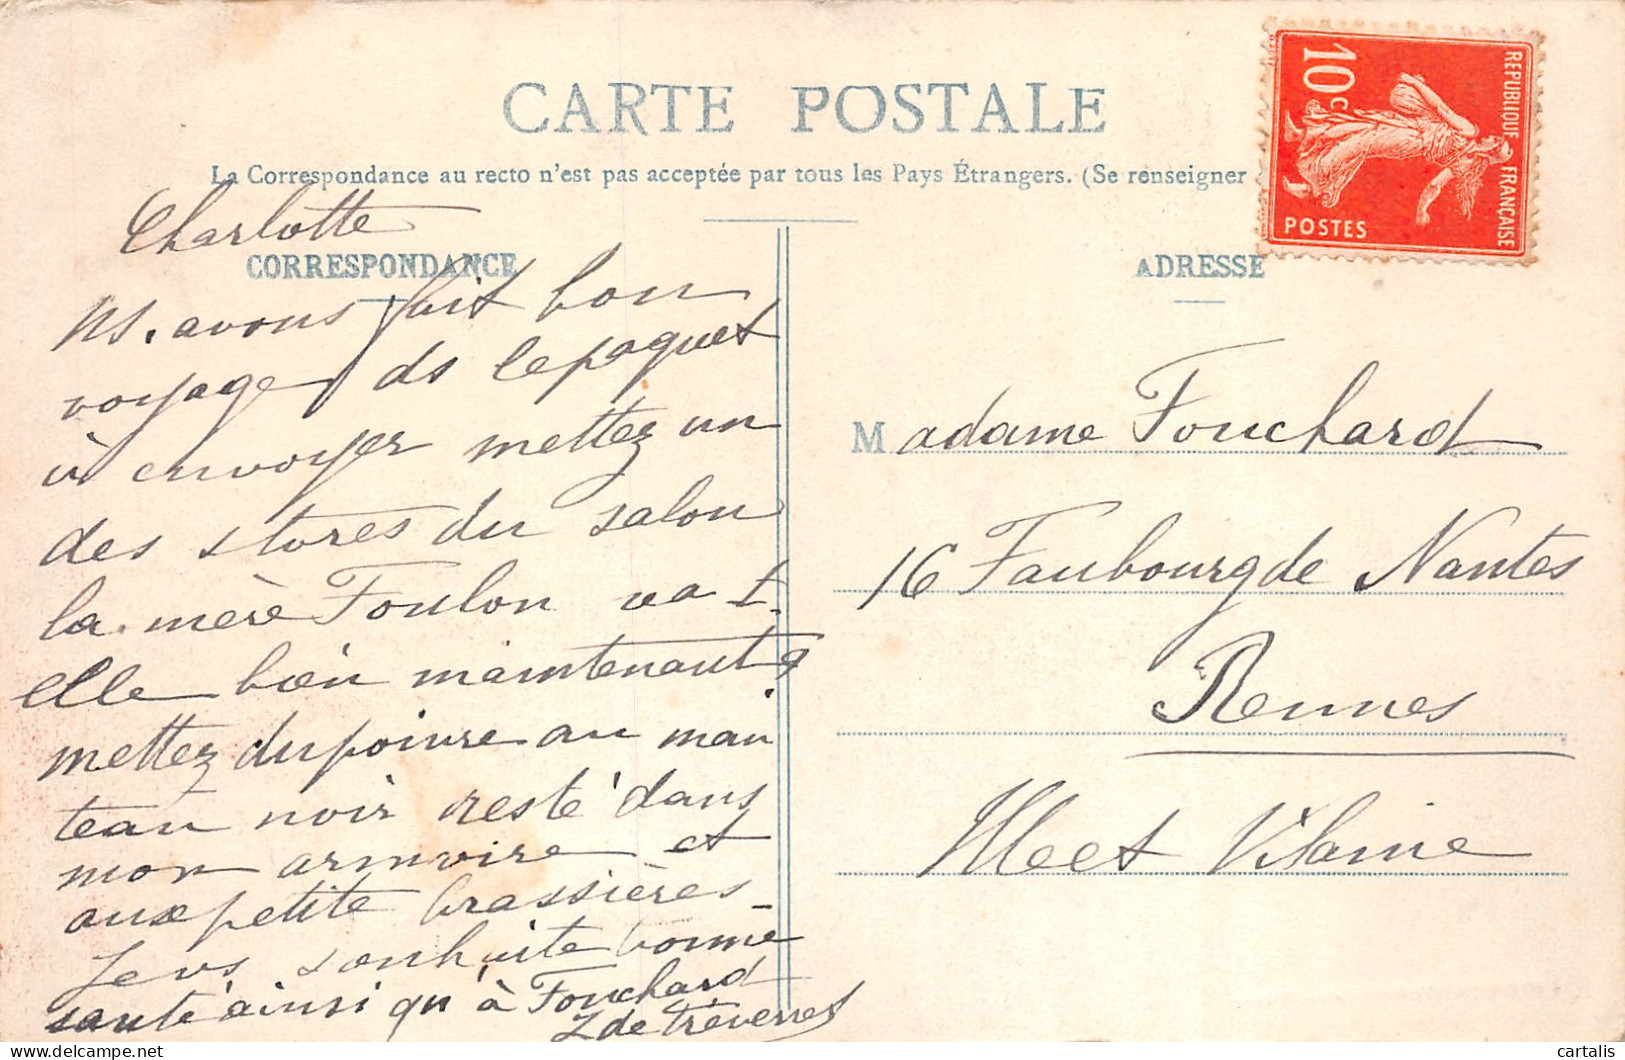 CARTE POSTALE
La Correspondance au recto n'est pas acceptée par tous les Pays Étrangers. (Se renseigner
10c
REPUBLIQUE FRANÇAISE
POSTES
CORRESPONDANCE
Charlotte
ns. avons fait bon
voyage ds le paquet
à envoyer mettez un
des stores du salon
la mère Foulon va t.
elle bien maintenant ?
mettez du poivre au man
teau noir resté dans
mon armoire et
aux petite brassières_
Je vs souhuite bonne
santé ainsi qu'à Fouchard
Z de Trèvernes
ADRESSE
Madame Fouchard
16 Faubourg de Nantes
Rennes
Ille et Vilaine
cartalis
delcampe.net